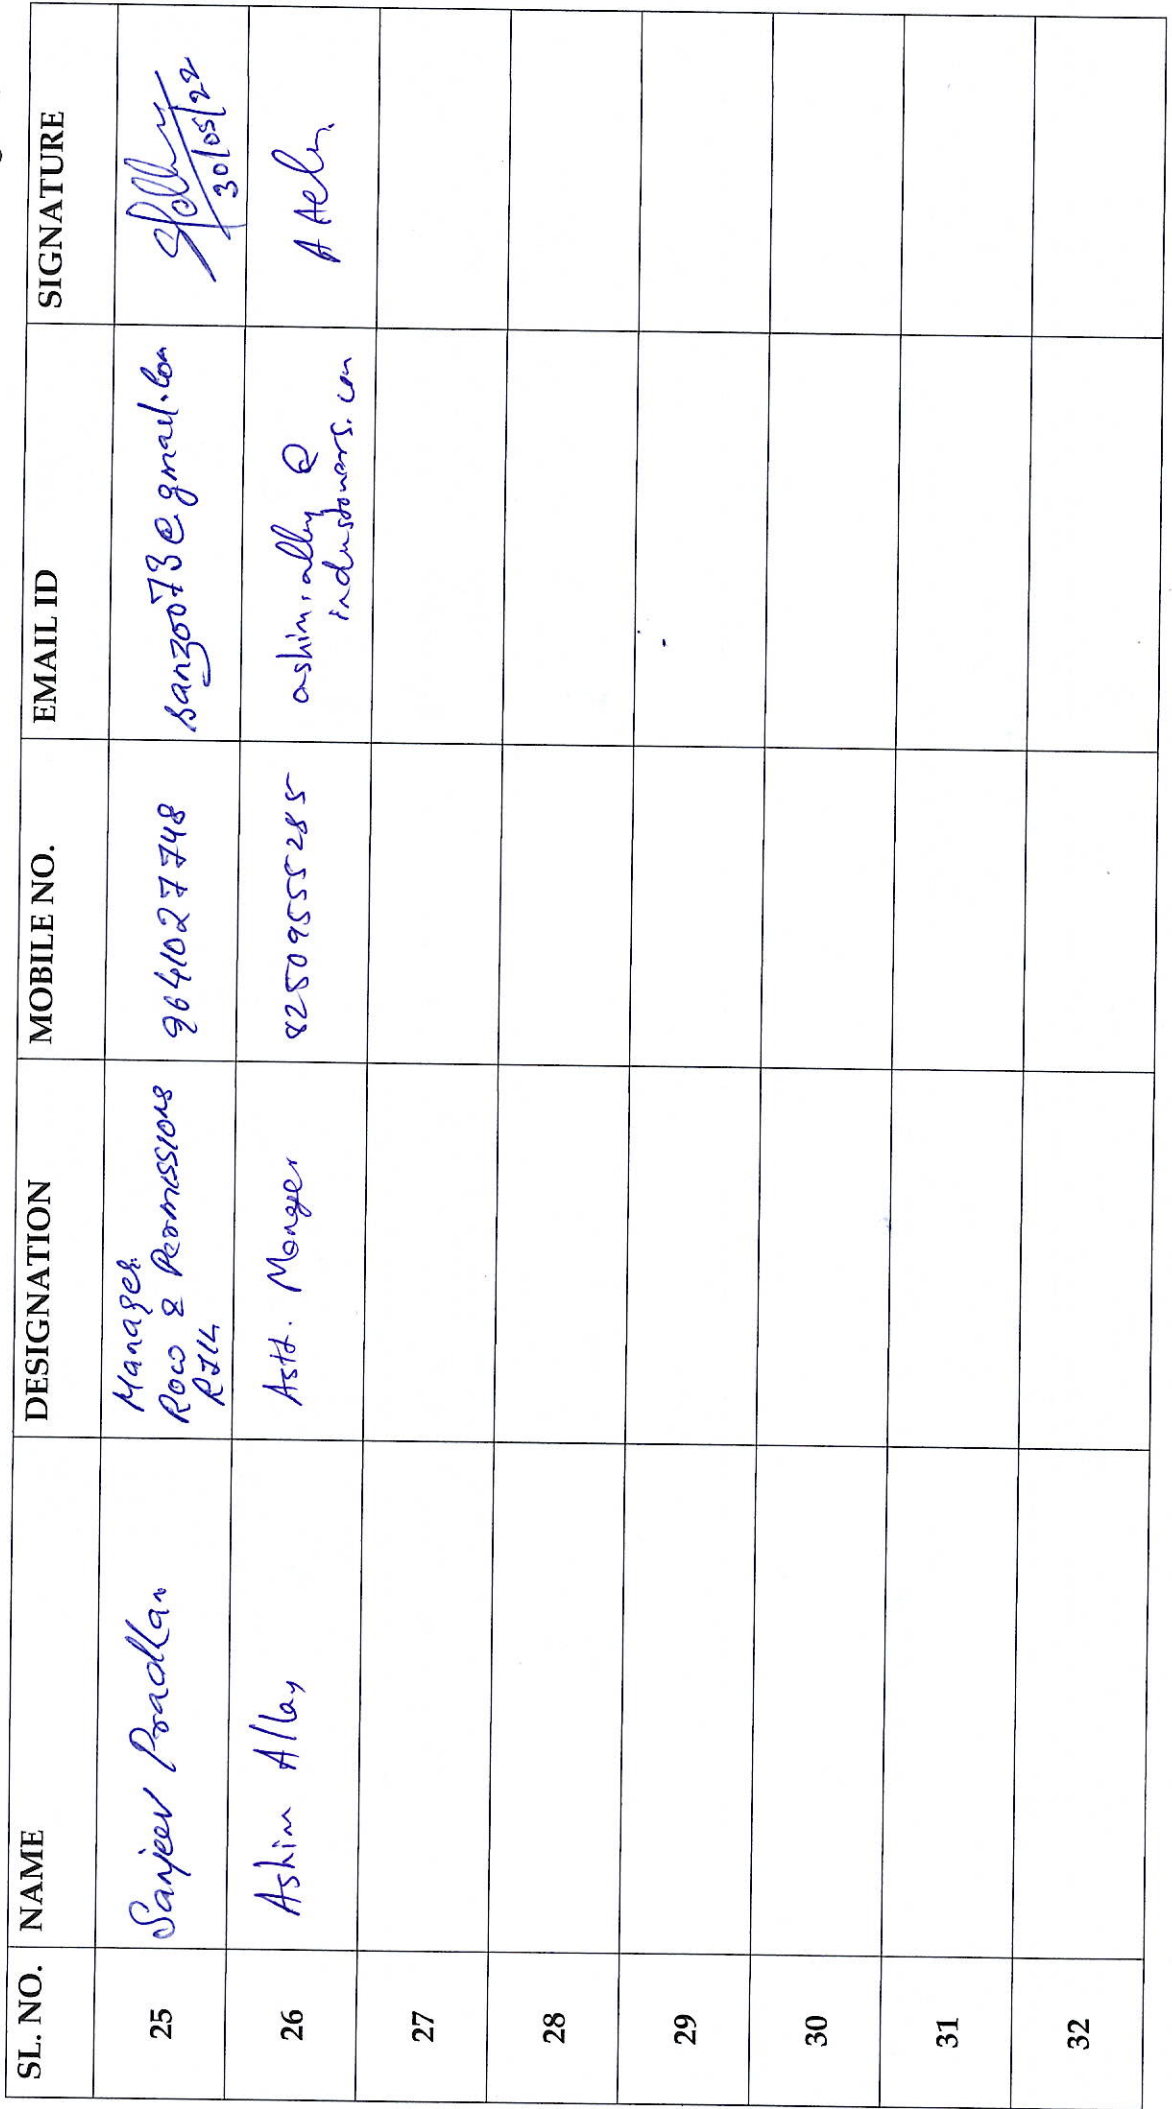 SL. NO. NAME DESIGNATION MOBILE NO. EMAIL ID SIGNATURE
25 Sanjeev Pradhan
Manager
Row & Permissions
RJIL
9641027748
sanzoo73@gmail.com
30/05/22
26 Ashim Allay
Astt. Manger
8250955285
ashim.allay@
industowers.com
27
28
29
30
31
32